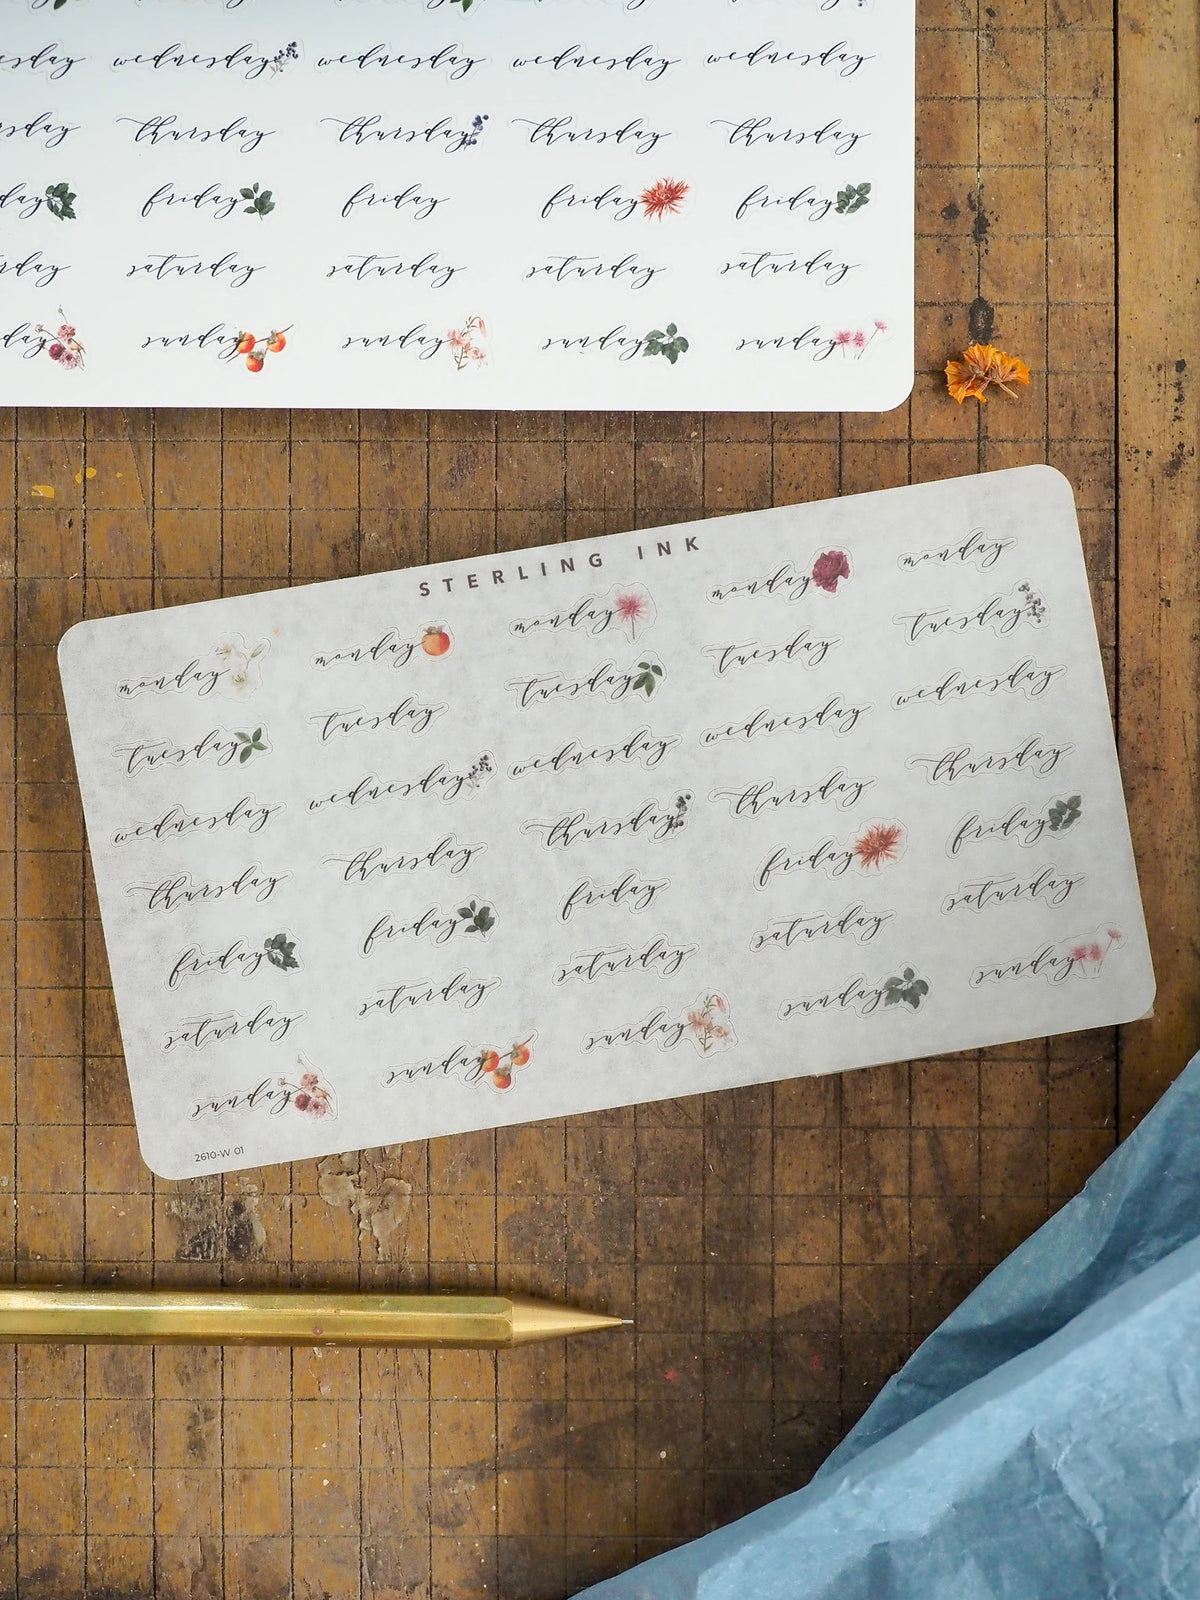 wednesday wednesday wednesday wednesday
thursday thursday thursday thursday
friday friday friday friday
saturday saturday saturday saturday
sunday sunday sunday sunday
STERLING INK
monday monday monday monday monday
tuesday tuesday tuesday tuesday tuesday
wednesday wednesday wednesday wednesday wednesday
thursday thursday thursday thursday thursday
friday friday friday friday friday
saturday saturday saturday saturday saturday
sunday sunday sunday sunday sunday
2610-W 01